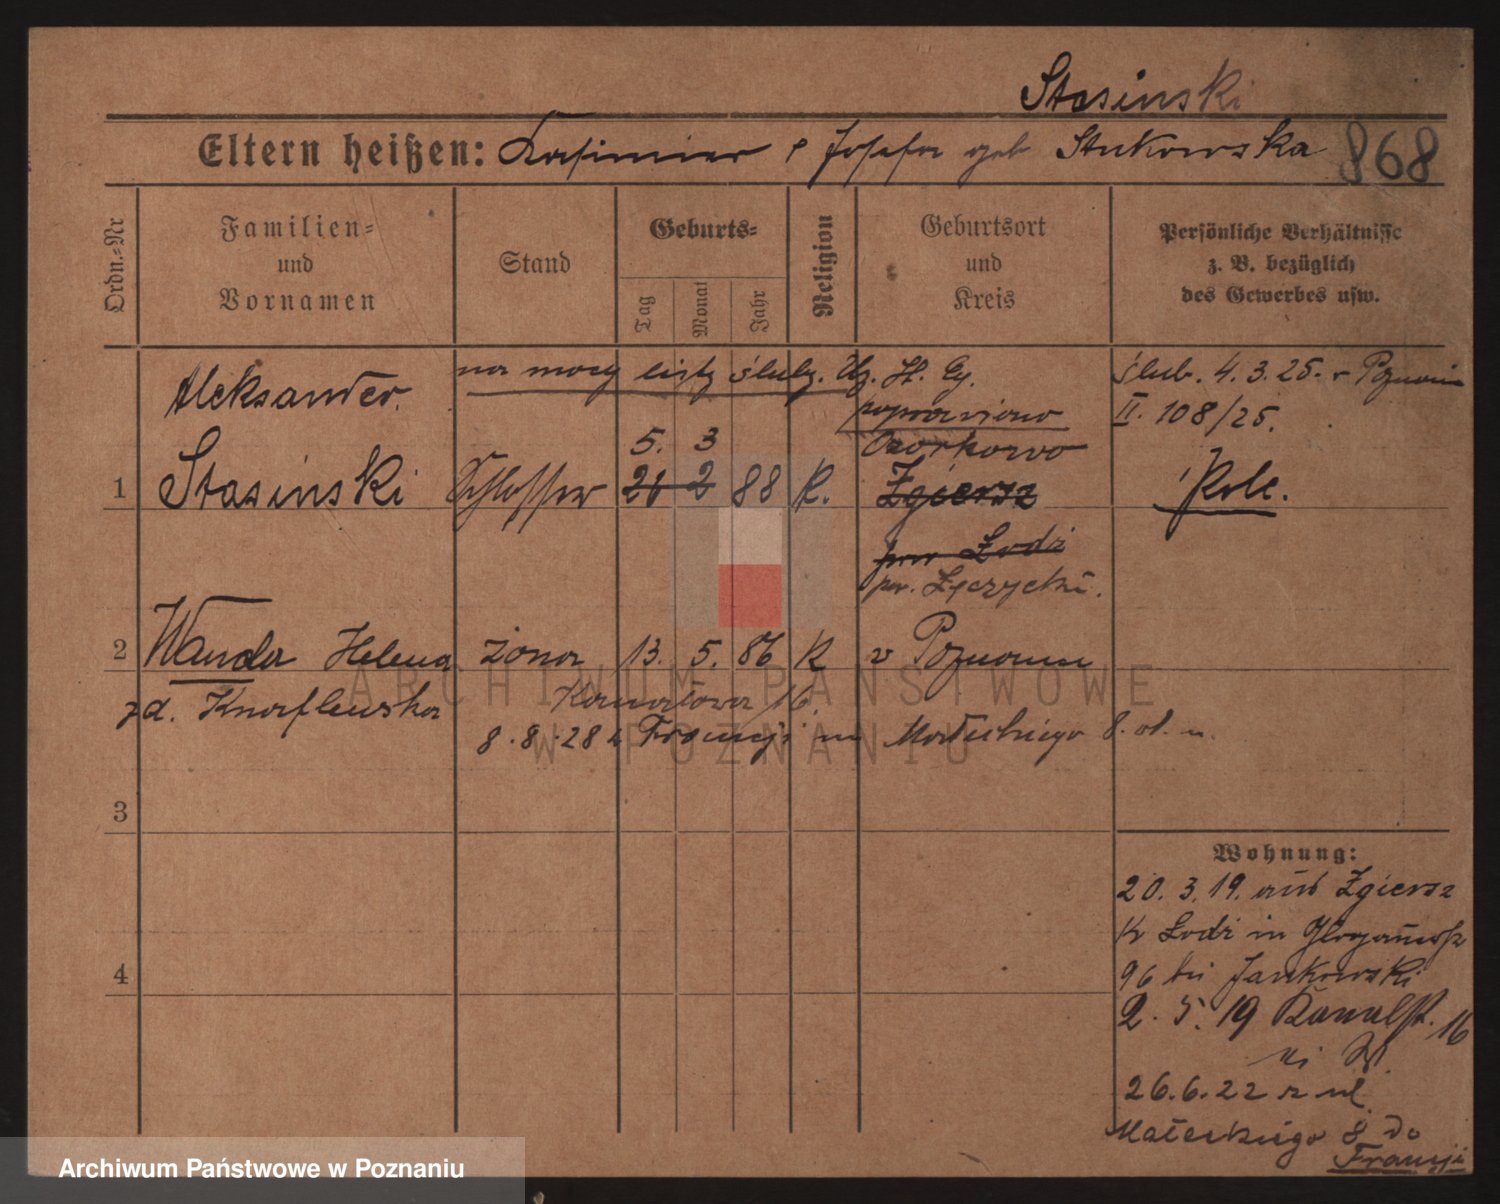 Stasinski
Eltern heißen: Kasimier & Josefa geb Stukowska 868
Ordn.=Nr
Familien=
und
Vornamen
Stand
Geburts=
Tag
Monat
Jahr
Religion
Geburtsort
und
Kreis
Persönliche Verhältnisse
z. B. bezüglich
des Gewerbes usw.
na mocy
ślub. 4.3.25. w Poznaniu
Aleksander
poprawiono
II. 108/25.
5. 3
Ozorkowo
1 Stasinski Schlosser 26 2 88 K. Zgiersz Pole.
pow Łodzi
pow. Łęczycki.
2 Wanda Helena żona 13. 5. 86 K w Poznaniu
zd. Knaflewska Kanałowa 16.
8.8.28 z Francji na Małeckiego 8.
3
4
Wohnung:
20.3.19. aus Zgiersz
Kr Lodz in
96 bei Jankowski
2.5.19 Kanalstr. 16
26.6.22 z ul.
Małeckiego 8 do
Francji
ARCHIWUM PAŃSTWOWE
W POZNANIU
Archiwum Państwowe w Poznaniu